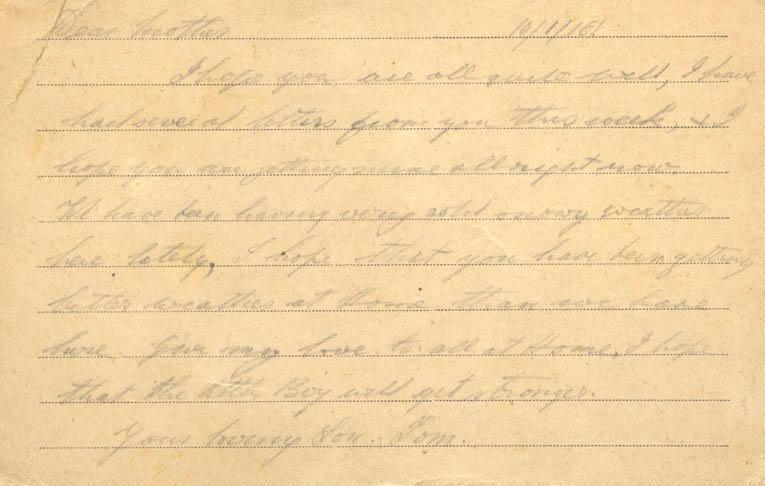 Dear Mother 10/1/18
I hope you are all quite well, I have
had several letters from you this week, & I
hope you are getting mine all right now.
We have been having very cold snowy weather
here lately, I hope that you have been getting
better weather at Home than we have
here. Give my love to all at Home, I hope
that the little Boy will get stronger.
Your loving Son. Tom.